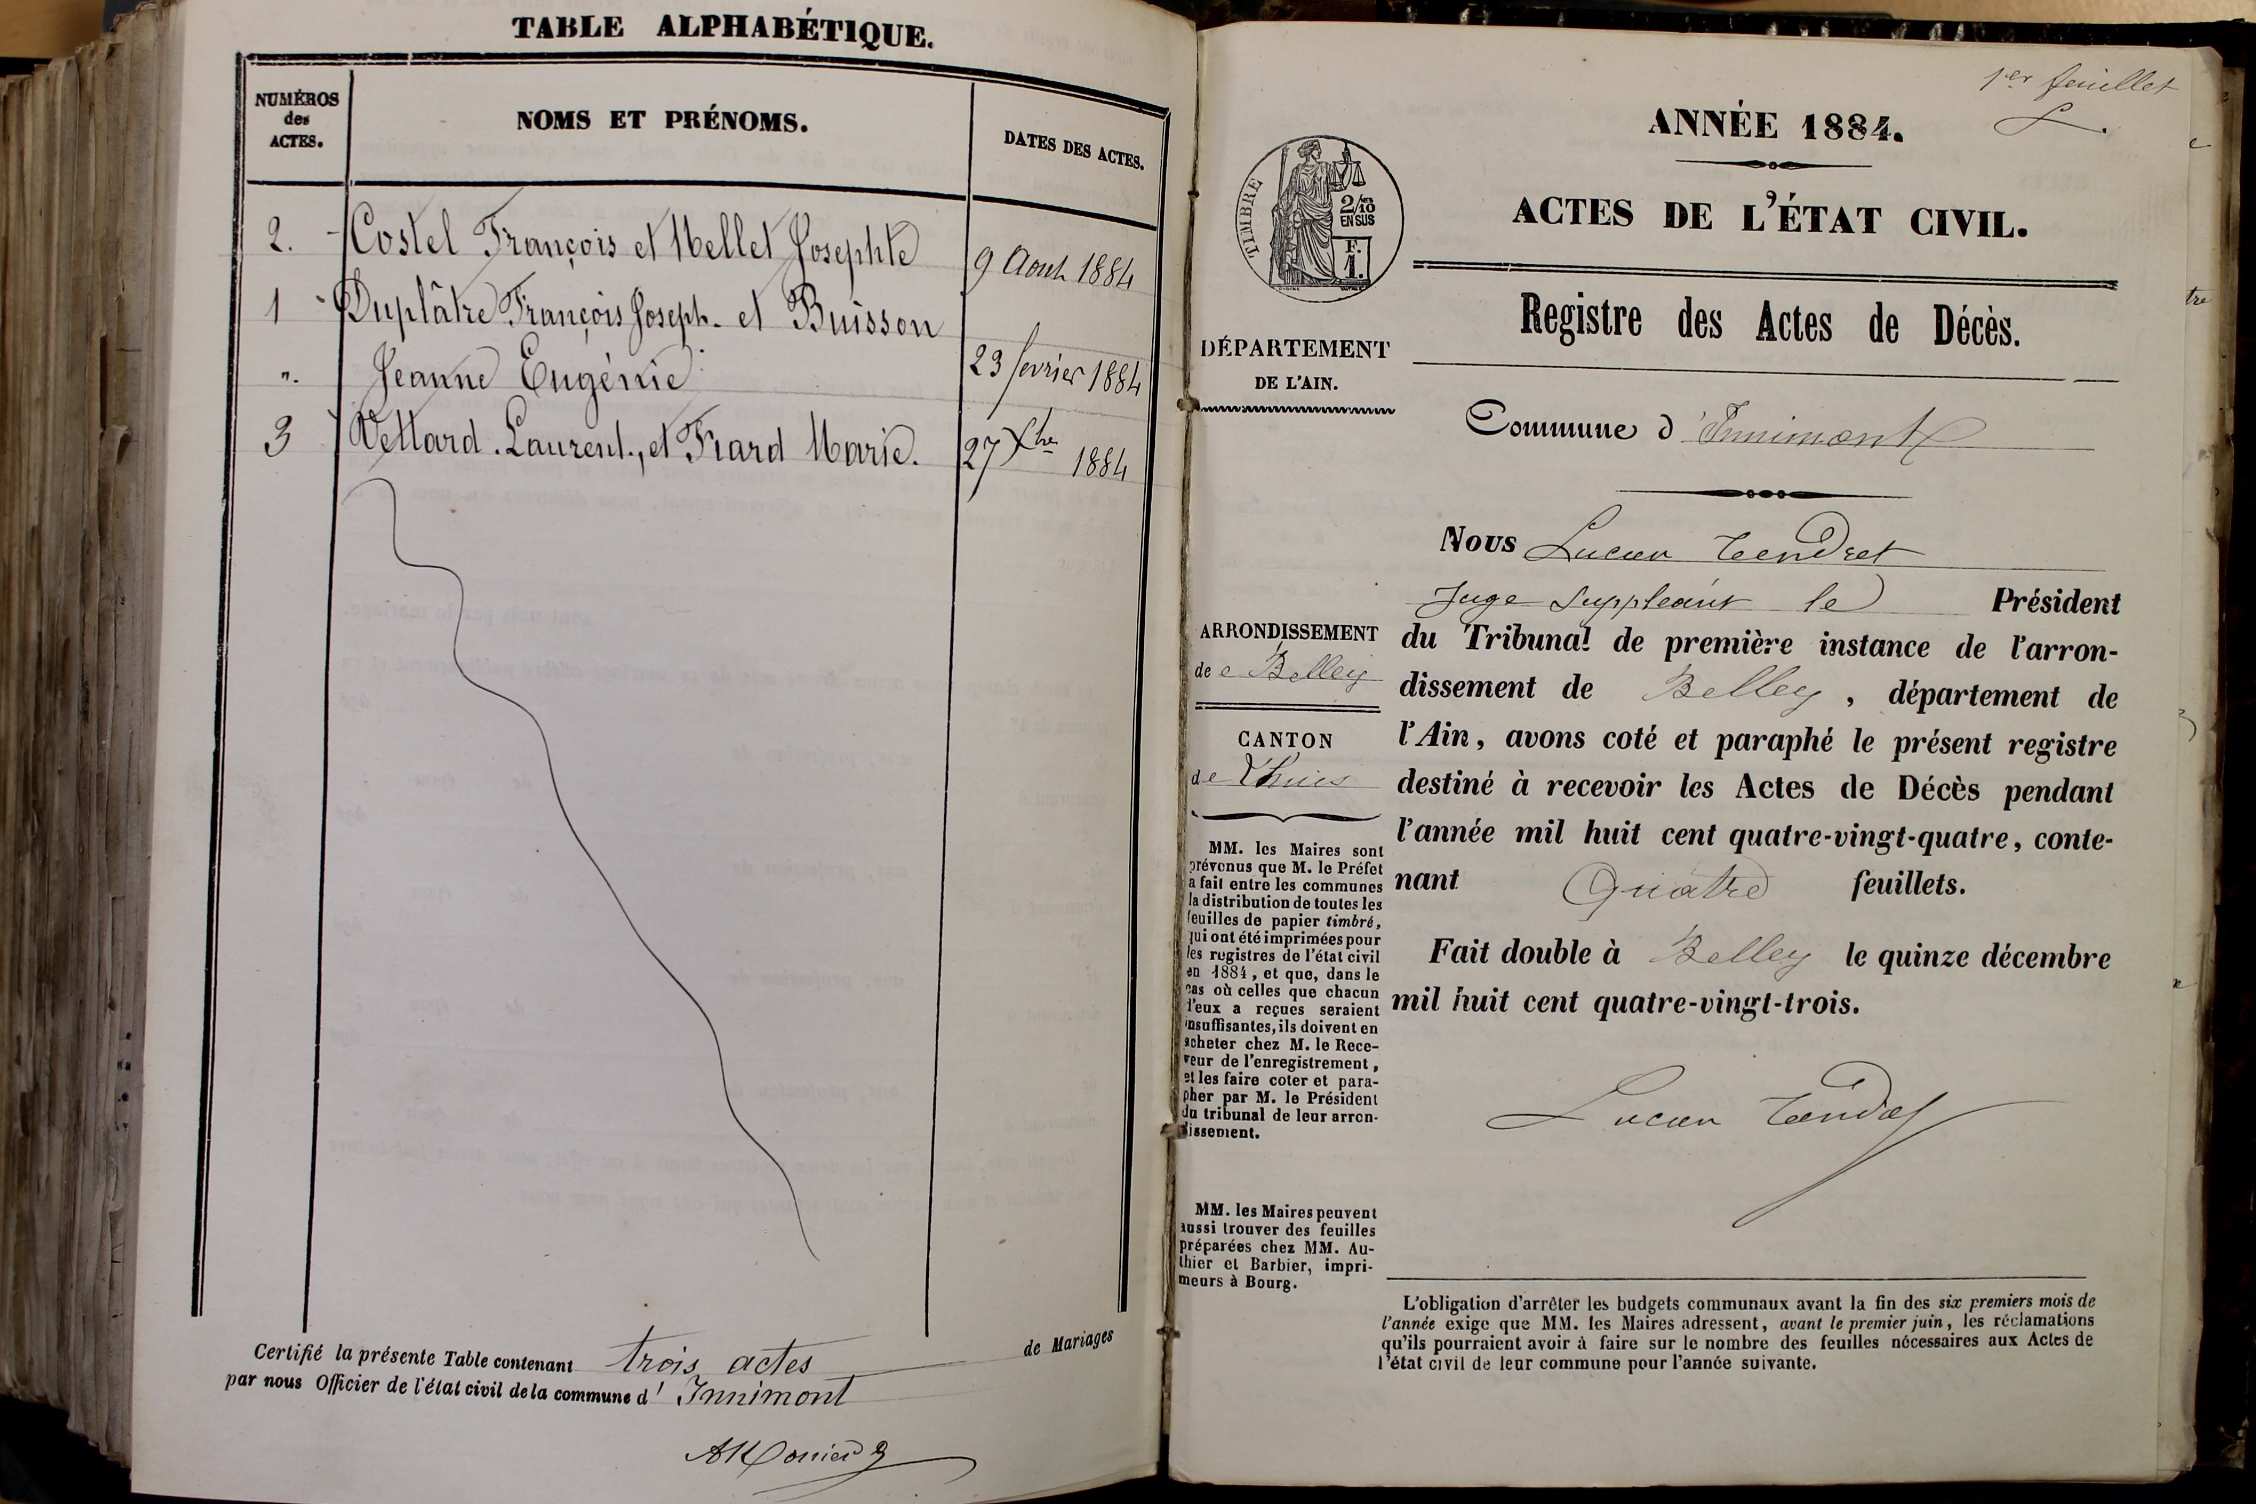 TABLE ALPHABÉTIQUE.
NUMÉROS
des
ACTES.
NOMS ET PRÉNOMS.
DATES DES ACTES.
2. Costel François et Mellet Josephte 9 Aout 1884
1 Duplâtre François Joseph. et Buisson
". Jeanne Eugénie 23 fevrier 1884
3 Vettard. Laurent., et Frard Marie. 27 Xbre 1884
Certifié la présente Table contenant trois actes de Mariages
par nous Officier de l'état civil de la commune d' Innimont
1er feuillet
ANNÉE 1884.
ACTES DE L'ÉTAT CIVIL.
TIMBRE
2/10
EN SUS
F.
1.
Registre des Actes de Décès.
DÉPARTEMENT
DE L'AIN.
Commune d'Innimont
Nous Lucien Tendret
Juge Suppléant le Président
du Tribunal de première instance de l'arron-
dissement de Belley, département de
l'Ain, avons coté et paraphé le présent registre
destiné à recevoir les Actes de Décès pendant
l'année mil huit cent quatre-vingt-quatre, conte-
nant Quatre feuillets.
Fait double à Belley le quinze décembre
mil huit cent quatre-vingt-trois.
Lucien Tendret
ARRONDISSEMENT
de Belley
CANTON
de
MM. les Maires sont
prévenus que M. le Préfet
a fait entre les communes
la distribution de toutes les
feuilles de papier timbré,
qui ont été imprimées pour
les registres de l'état civil
en 1884, et que, dans le
cas où celles que chacun
d'eux a reçues seraient
insuffisantes, ils doivent en
acheter chez M. le Rece-
veur de l'enregistrement,
et les faire coter et para-
pher par M. le Président
du tribunal de leur arron-
dissement.
MM. les Maires peuvent
aussi trouver des feuilles
préparées chez MM. Au-
thier et Barbier, impri-
meurs à Bourg.
L'obligation d'arrêter les budgets communaux avant la fin des six premiers mois de
l'année exige que MM. les Maires adressent, avant le premier juin, les réclamations
qu'ils pourraient avoir à faire sur le nombre des feuilles nécessaires aux Actes de
l'état civil de leur commune pour l'année suivante.